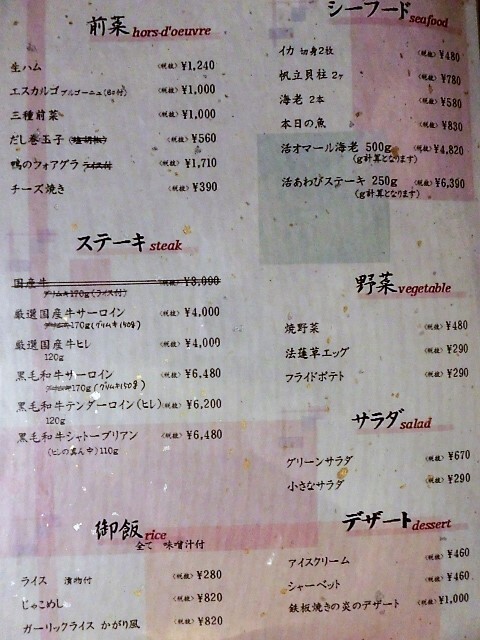 前菜 hors-d'oeuvre
生ハム 〈税抜〉 ¥1,240
エスカルゴ ブルゴーニュ(6コ付) 〈税抜〉 ¥1,000
三種前菜 〈税抜〉 ¥1,000
だし巻玉子 〈税抜〉 ¥560
鴨のフォアグラ ライス付 〈税抜〉 ¥1,710
チーズ焼き 〈税抜〉 ¥390
ステーキ steak
国産牛 〈税抜〉 ¥3,000
170g(ライス付)
厳選国産牛サーロイン 〈税抜〉 ¥4,000
170g(グリムキ150g)
厳選国産牛ヒレ 〈税抜〉 ¥4,000
120g
黒毛和牛サーロイン 〈税抜〉 ¥6,480
170g(グリムキ150g)
黒毛和牛テンダーロイン(ヒレ) 〈税抜〉 ¥6,200
120g
黒毛和牛シャトーブリアン 〈税抜〉 ¥6,480
(ヒレの真ん中)110g
御飯 rice
全て 味噌汁付
ライス 漬物付 〈税抜〉 ¥280
じゃこめし 〈税抜〉 ¥820
ガーリックライス かがり風 〈税抜〉 ¥820
シーフード seafood
イカ 切身2枚 〈税抜〉 ¥480
帆立貝柱 2ヶ 〈税抜〉 ¥780
海老 2本 〈税抜〉 ¥580
本日の魚 〈税抜〉 ¥830
活オマール海老 500g 〈税抜〉 ¥4,820
(g計算となります)
活あわびステーキ 250g 〈税抜〉 ¥6,390
(g計算となります)
野菜 vegetable
焼野菜 〈税抜〉 ¥480
法蓮草エッグ 〈税抜〉 ¥290
フライドポテト 〈税抜〉 ¥290
サラダ salad
グリーンサラダ 〈税抜〉 ¥670
小さなサラダ 〈税抜〉 ¥290
デザート dessert
アイスクリーム 〈税抜〉 ¥460
シャーベット 〈税抜〉 ¥460
鉄板焼きの炎のデザート 〈税抜〉 ¥1,000